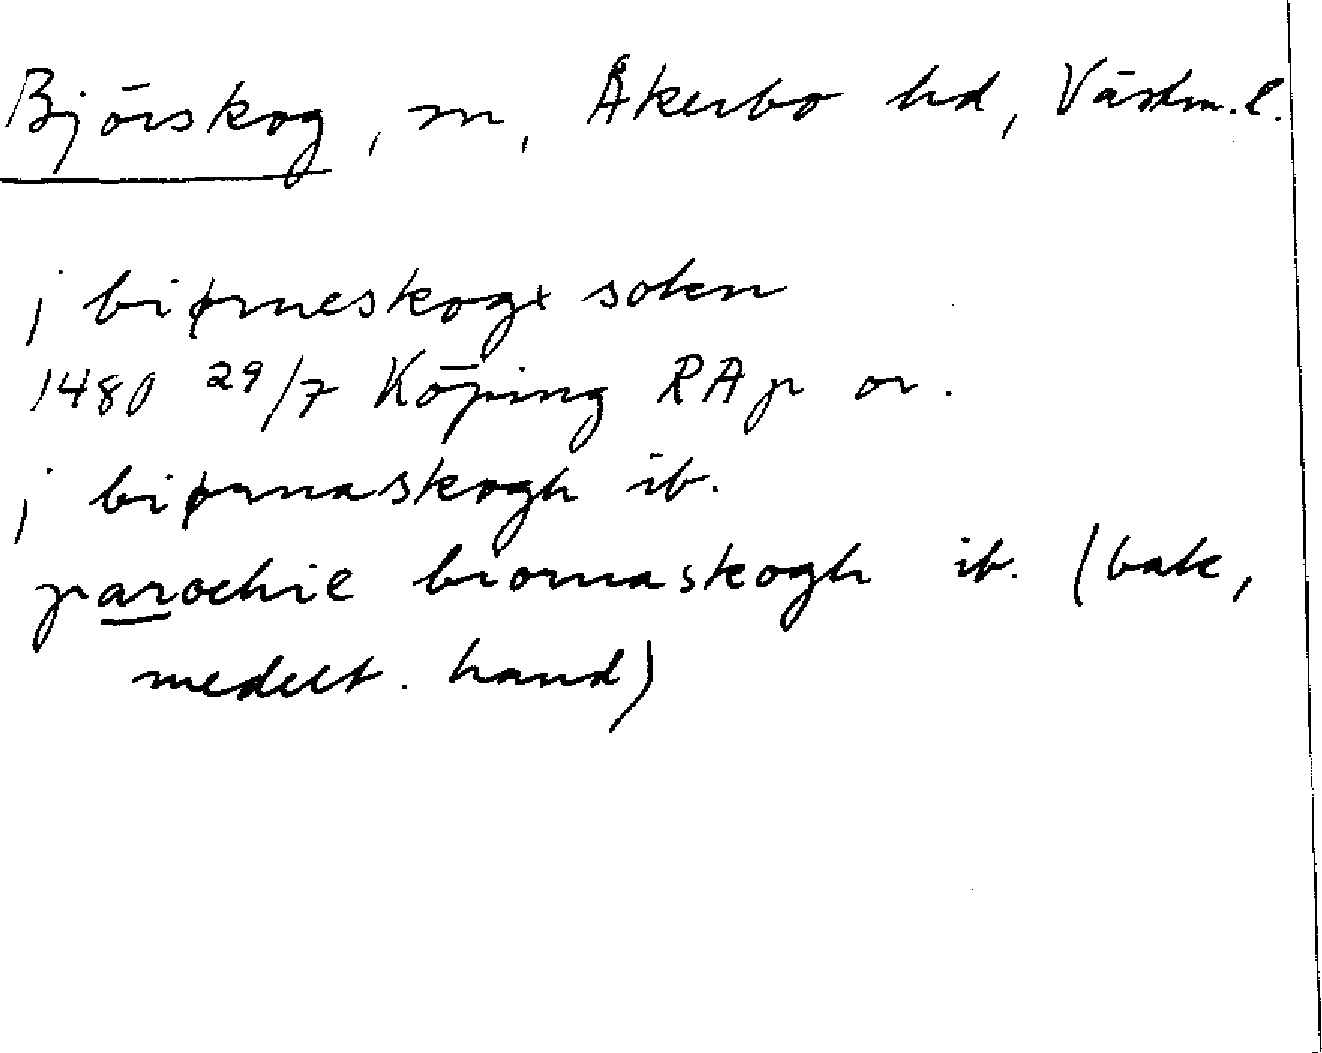 Björskog, sn, Åkerbo hd, Västm. l.
j biørneskogx sokn
1480 29/7 Köping RAp or.
j biørnaskogh ib.
parochie biornaskogh ib. (bak,
medelt. hand)